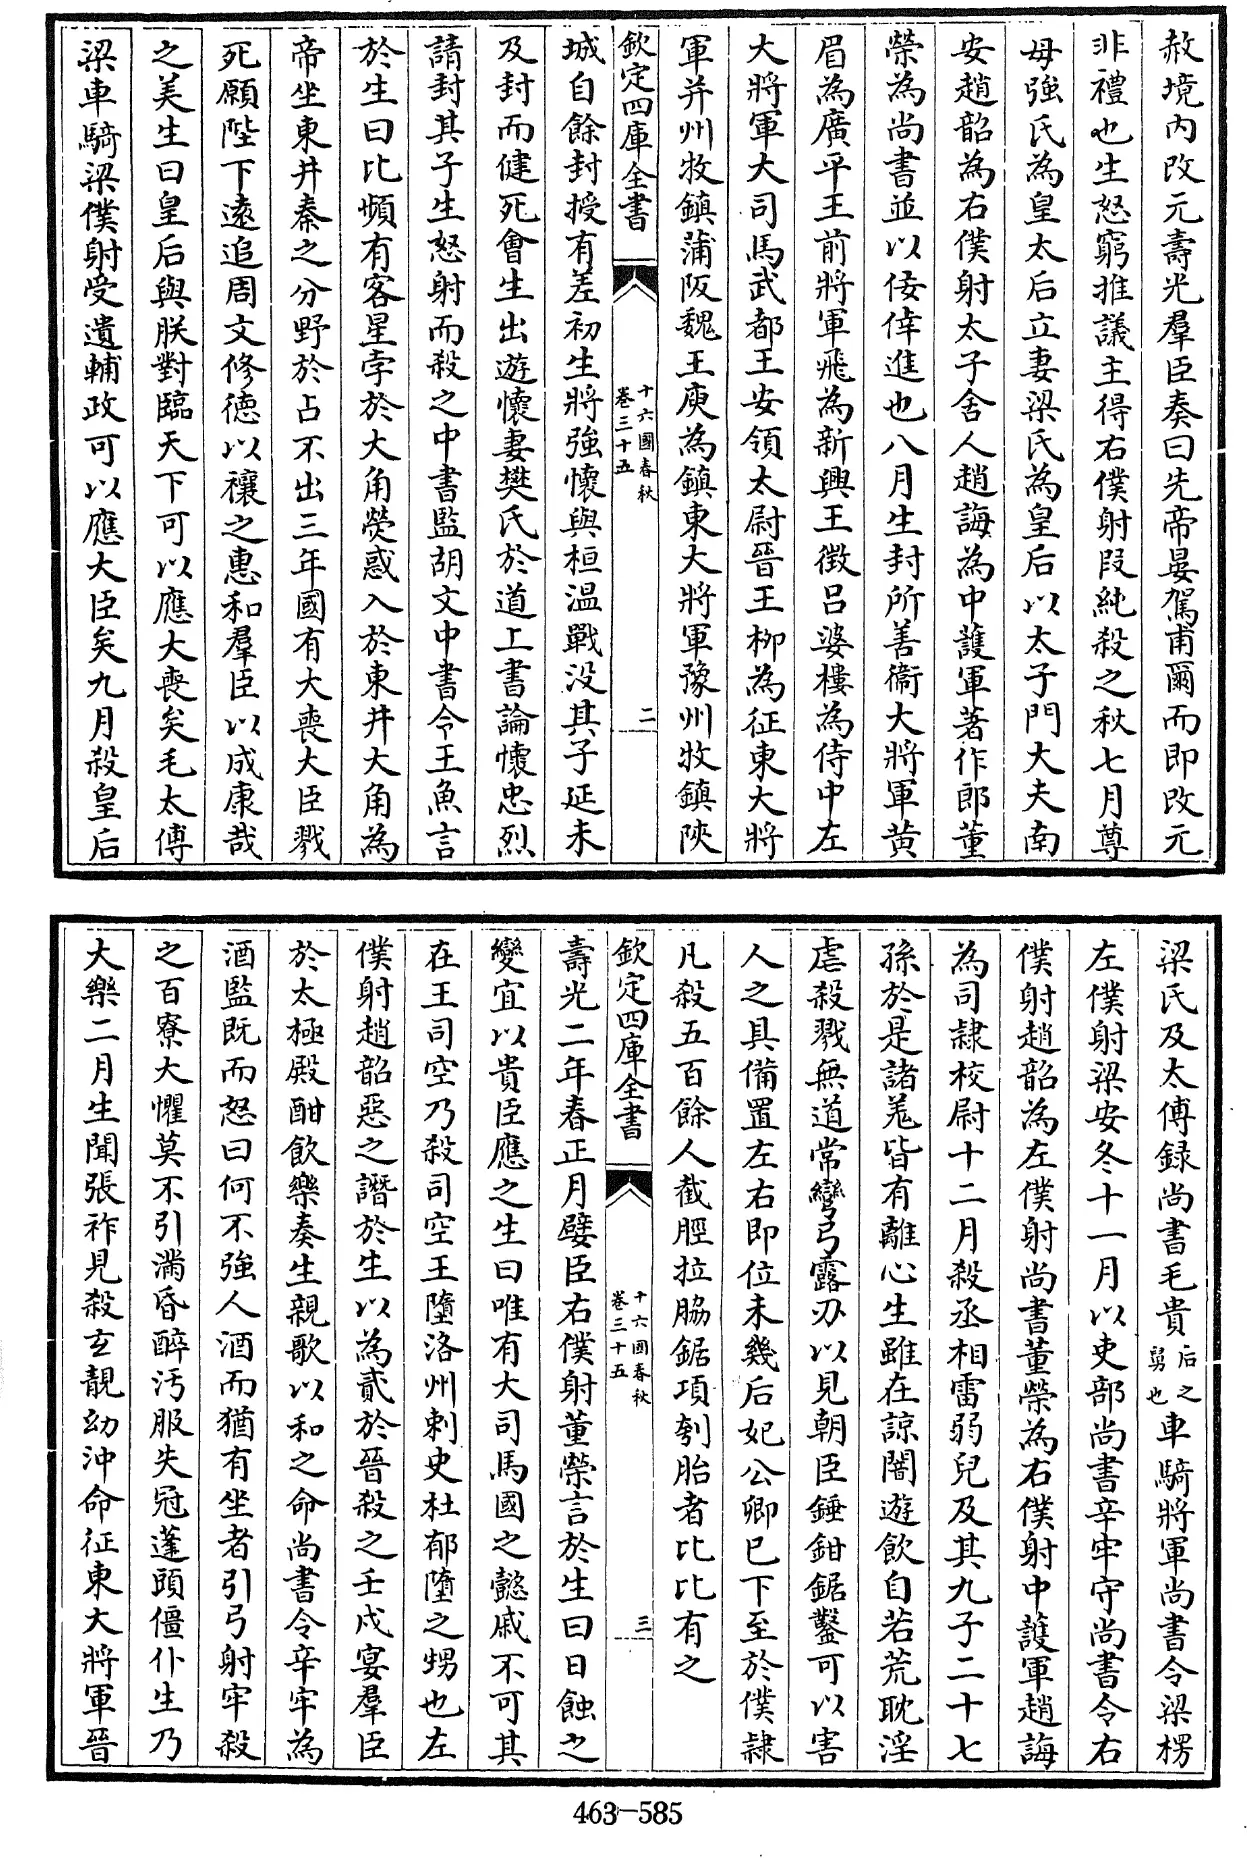 赦境內改元壽光羣臣奏曰先帝晏駕甫爾而即改元
非禮也生怒窮推議主得右僕射段純殺之秋七月尊
母強氏為皇太后立妻梁氏為皇后以太子門大夫南
安趙韶為右僕射太子舍人趙誨為中護軍著作郎董
榮為尚書並以佞倖進也八月生封所善衞大將軍黄
眉為廣平王前將軍飛為新興王徵呂婆樓為侍中左
大將軍大司馬武都王安領太尉晉王柳為征東大將
軍并州牧鎮蒲阪魏王庾為鎮東大將軍豫州牧鎮陝
欽定四庫全書
十六國春秋
卷三十五
二
城自餘封授有差初生將強懷與桓溫戰没其子延未
及封而健死會生出遊懷妻樊氏於道上書論懷忠烈
請封其子生怒射而殺之中書監胡文中書令王魚言
於生曰比頻有客星孛於大角熒惑入於東井大角為
帝坐東井秦之分野於占不出三年國有大喪大臣戮
死願陛下遠追周文修德以禳之惠和羣臣以成康哉
之美生曰皇后與朕對臨天下可以應大喪矣毛太傅
梁車騎梁僕射受遺輔政可以應大臣矣九月殺皇后
梁氏及太傅録尚書毛貴后之舅也車騎將軍尚書令梁楞
左僕射梁安冬十一月以吏部尚書辛牢守尚書令右
僕射趙韶為左僕射尚書董榮為右僕射中護軍趙誨
為司隸校尉十二月殺丞相雷弱兒及其九子二十七
孫於是諸羗皆有離心生雖在諒闇遊飲自若荒耽淫
虐殺戮無道常彎弓露刃以見朝臣錘鉗鋸鑿可以害
人之具備置左右即位未幾后妃公卿已下至於僕隸
凡殺五百餘人截脛拉脇鋸項刳胎者比比有之
欽定四庫全書
十六國春秋
卷三十五
三
壽光二年春正月嬖臣右僕射董榮言於生曰日蝕之
變宜以貴臣應之生曰唯有大司馬國之懿戚不可其
在王司空乃殺司空王墮洛州刺史杜郁墮之甥也左
僕射趙韶惡之譖於生以為貳於晉殺之壬戌宴羣臣
於太極殿酣飲樂奏生親歌以和之命尚書令辛牢為
酒監既而怒曰何不強人酒而猶有坐者引弓射牢殺
之百寮大懼莫不引滿昏醉汚服失冠蓬頭僵仆生乃
大樂二月生聞張祚見殺玄靚幼沖命征東大將軍晉
463-585